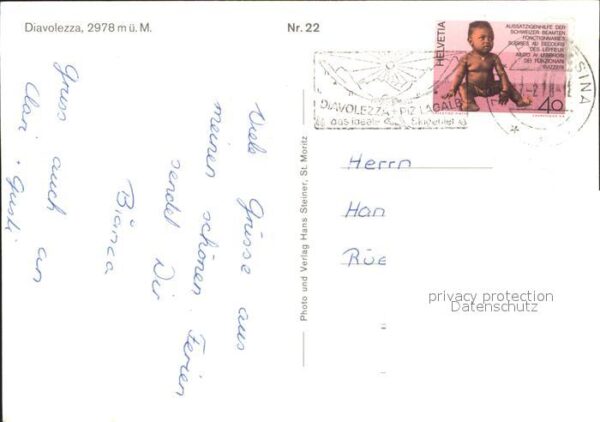 Diavolezza, 2978 m ü. M.
Nr. 22
Viele Grüsse aus
meinen schönen Ferien
sendet Dir
Bianca
Gruss auch an
Clari + Gusti
Photo und Verlag Hans Steiner, St. Moritz
HELVETIA
AUSSÄTZIGENHILFE DER
SCHWEIZER BEAMTEN
FONCTIONNAIRES
SUISSES AU SECOURS
DES LÉPREUX
AIUTO AI LEBBROSI
DEI FUNZIONARI
SVIZZERI
40
DIAVOLEZZA + PIZ LAGALB
das ideale
ESINA
Herrn
Han
Rüe
privacy protection
Datenschutz